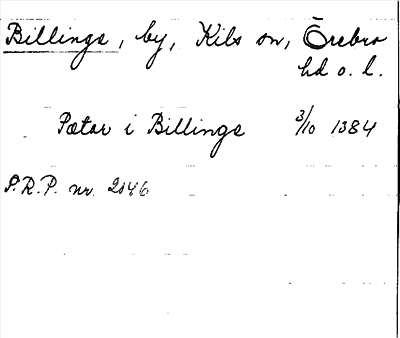 Billinge, by, Kils sn, Örebro
hd o. l.
Pætar i Billinge 3/10 1384
P.R.P. nr. 2146